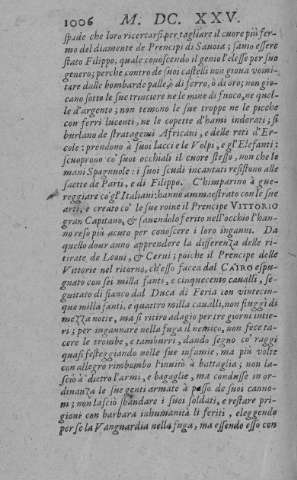 1006 M. DC. XXV.
spade che loro ricercarsi per tagliare il cuore più fer-
mo del diamente de Prencipi di Sauoia; sanno essere
stato Filippo, quale conoscendo il genio l'elesse per suo
genero; perche contro de suoi castelli non gioua vomi-
tare dalle bombarde palle ò di ferro, ò di oro; non gio-
cano sotto le sue trinciere ne le mine di fuoco, ne quel-
le d'argento; non temono le sue troppe ne le picche
con ferri lucenti, ne le coppette d'hami indorati; si
burlano de stratagemi Africani, e delle reti d'Er-
cole: prendono à suoi lacci e le Volpi, e gl'Elefanti;
scuoprono co' suoi occhiali il cuore stesso, non che le
mani Spagnuole: i suoi scudi incantati resistono alle
saette de Paris, e di Filippo. C'himparino à gue-
reggiare co' gl'Italiani; hanno ammaestrato con le sue
arti, e creato cò le sue roine il Prencipe VITTORIO
gran Capitano, & hauendolo ferito nell'occhio l'han-
no reso più acuto per conoscere i loro inganni. Da
quello dour anno apprendere la differenza delle ri-
tirate de Leoni, & Cerui; poiche il Prencipe delle
Vittorie nel ritorno, ch'esso facea dal CAIRO espu-
gnato con sei milla fanti, e cinquecento caualli, se-
guitato di fianco dal Duca di Feria con vinticin-
que milla fanti, e quattro milla caualli, non fuggì di
mezza notte, ma si ritirò adagio per tre giorni intie-
ri; per ingannare nella fuga il nemico, non fece ta-
cere le trombe, e tamburi, dando segno co' raggi
quasi festeggiando nelle sue infamie, ma più volte
con allegro rimbombo l'inuitò à battaglie; non la-
sciò à dietro l'armi, e bagaglie, ma condusse in or-
dinanza le sue genti armate à passo de suoi canno-
ni; non lasciò sbandare i suoi soldati, e restare pri-
gioni con barbara inhumanità li feriti, eleggendo
per se la Vanguardia nella fuga, ma essendo esso con